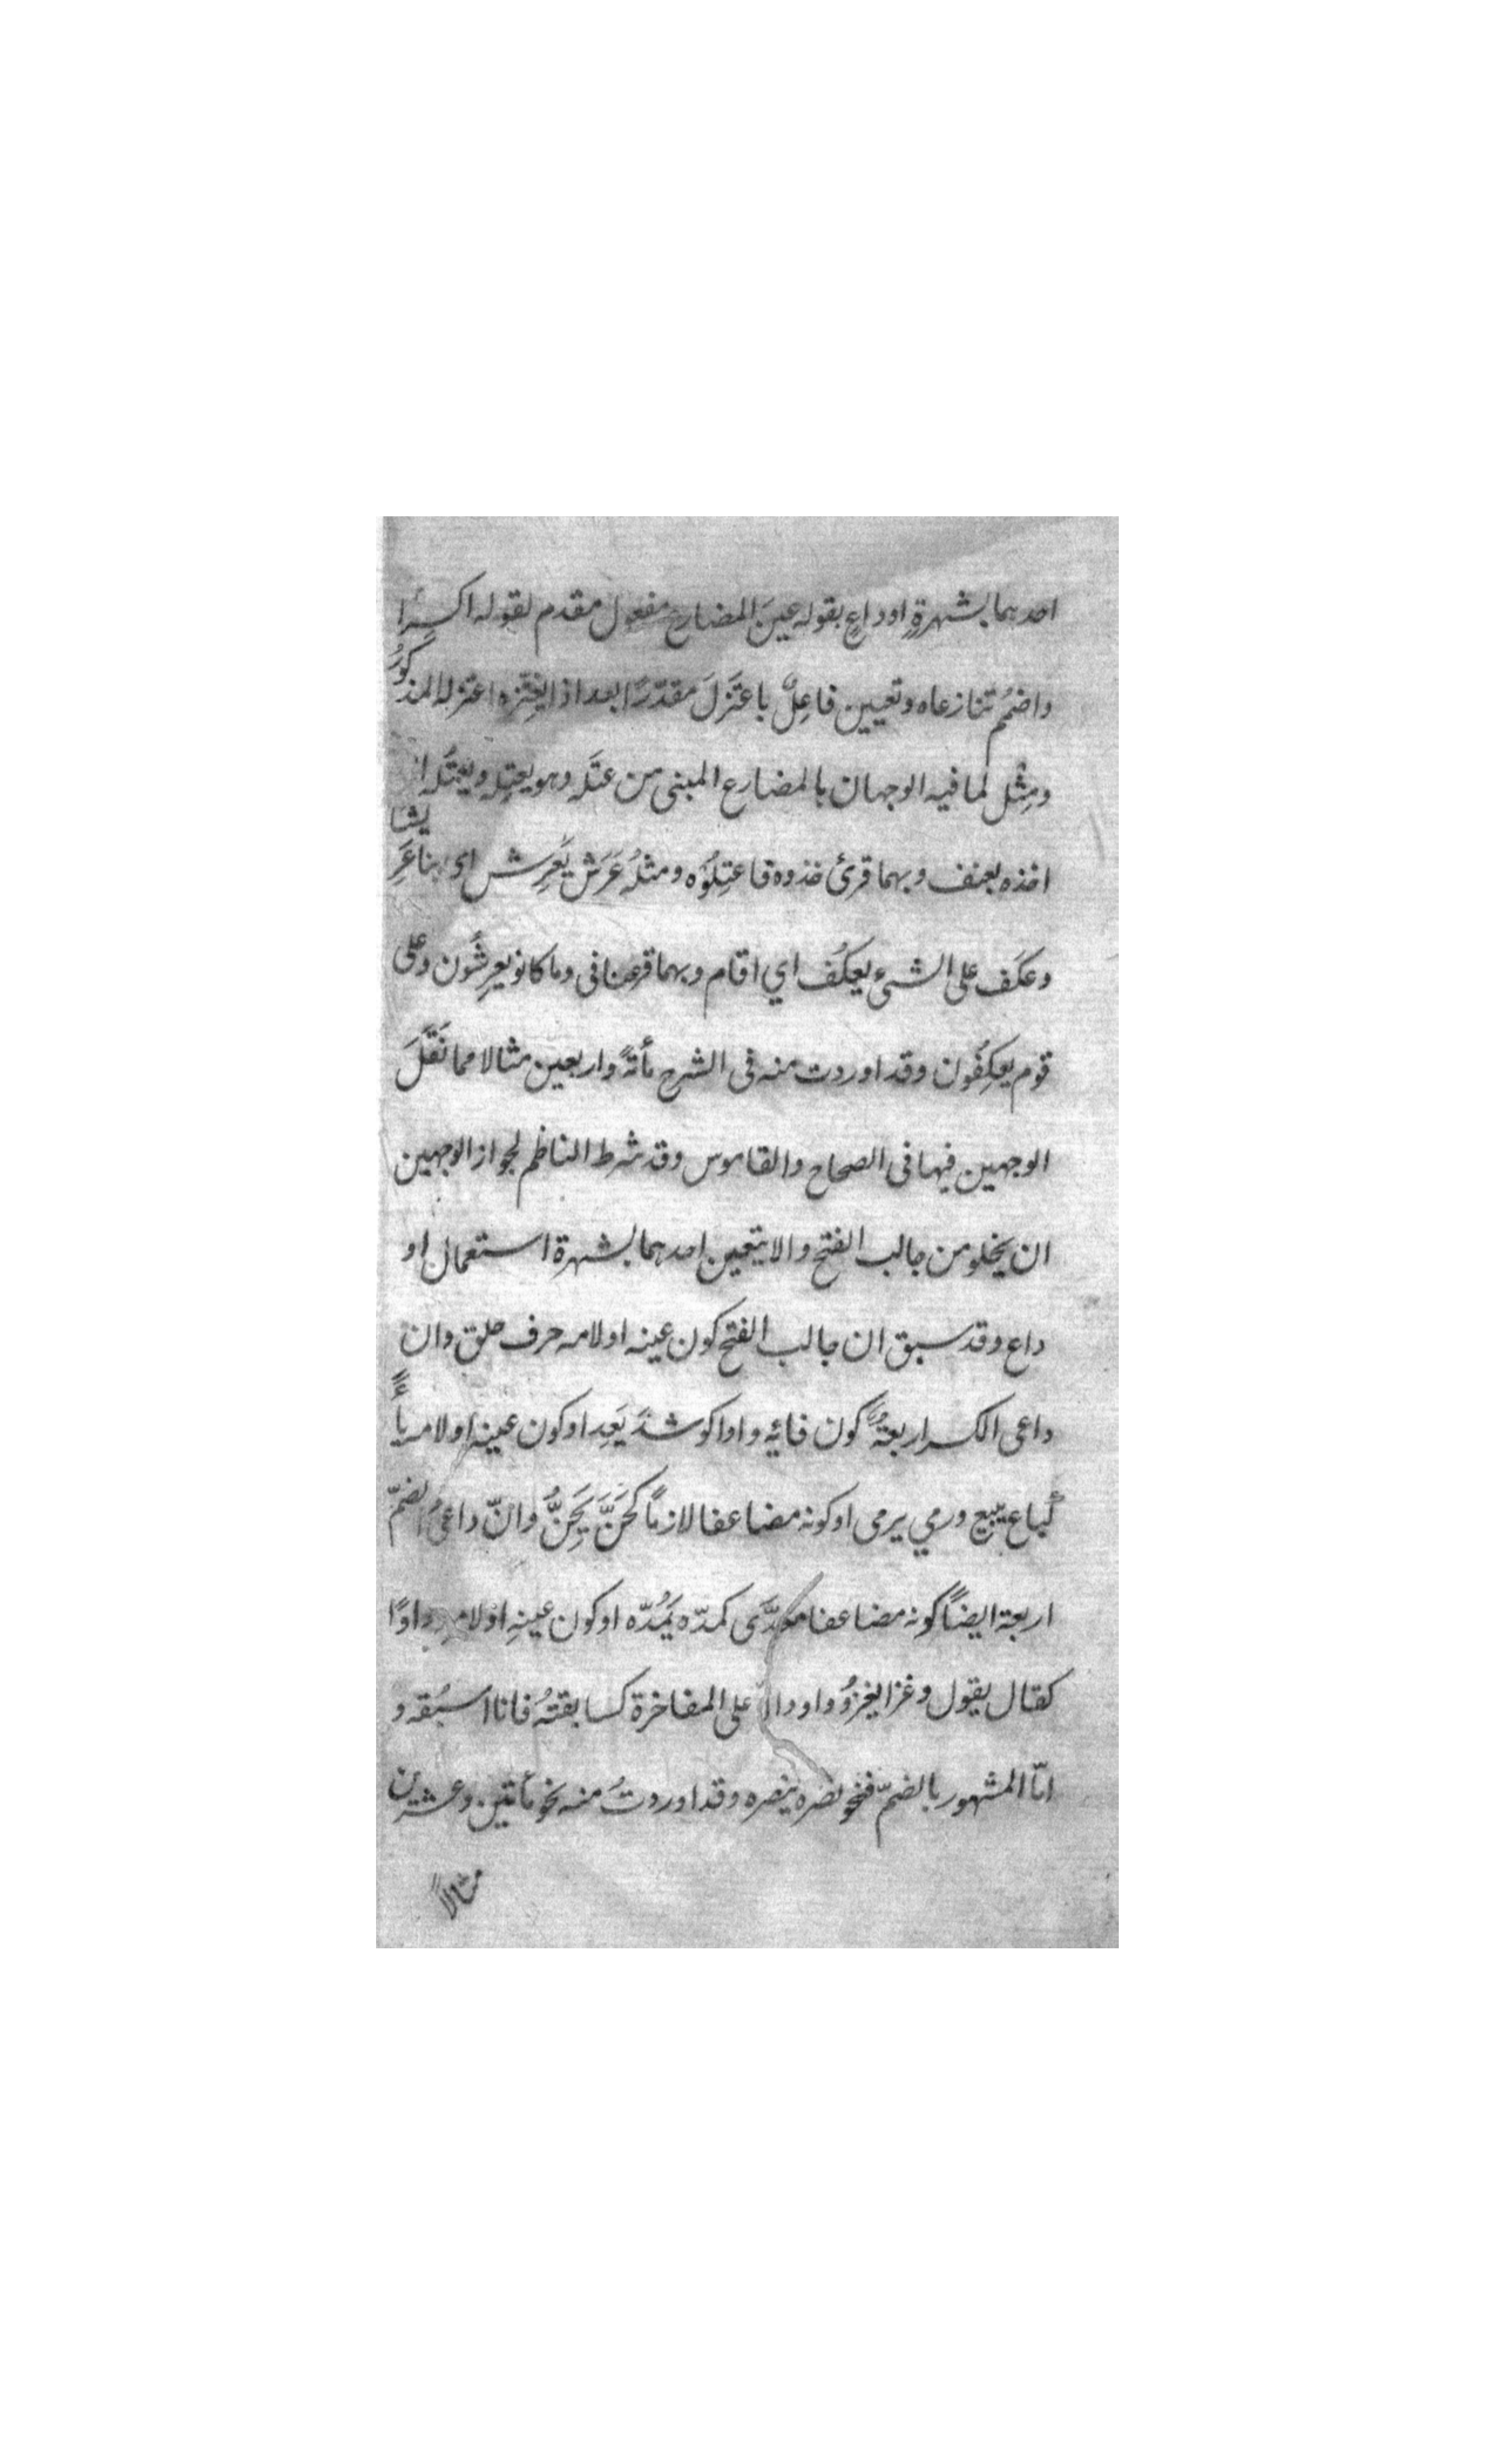 احدهما بشهرةٍ او داعٍ بقوله عينَ المضارع مفعول مقدم لقوله اكسِرا
واضمُم تنازعاه وتعيين فاعِلٌ باعتَزلَ مقدّرًا بعد اذ ليفسّره اعتزله المذكورُ
ومِثْل لما فيه الوجهان بالمضارع المبنى من عتَله وهو يعتِله ويعتُله اذا
اخذه بعنف وبهما قرئ خذوه فاعتِلُوُه ومثلُه عَرَش يَعرِش اى بنا عَرِيشا
وعكَف على الشىء يعكُف اي اقام وبهما قرئ فى وما كانو يعرِشُون وعلى
قوم يعكِفُون وقد اوردت منه فى الشرح مأئةً واربعين مثالا مما نَقَلَ
الوجهين فيها فى الصحاح والقاموس وقد شرط الناظم لجواز الوجهين
ان يخلو من جالب الفتح والا يتعين احدهما بشهرة استعمال او
داع وقد سبق ان جالب الفتح كون عينه او لامه حرف حلق وان
داعى الكسر اربعةٌ كون فائِه واوا كوشدَ يَعِد او كون عينِه او لامه ياءً
كباع يبيع ورمي يرمى او كونه مضاعفا لازمًا كحَنَّ يَحِنُّ وانّ داعىَ الضمّ
اربعة ايضًا كونه مضاعفا معدَّى كمدّه يَمُدّه او كون عينِه او لامِه واوًا
كقال يقول وغزا يغزوُ او دالّ على المفاخرة كسابقته فانا اسبُقه و
امّا المشهور بالضمّ فنحو نصره ينصره وقد اوردتُ منه نحو مأتين وعشرين
مثالاً